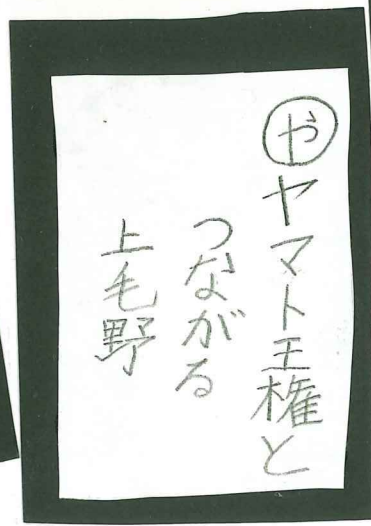 や ヤマト王権と
つながる
上毛野